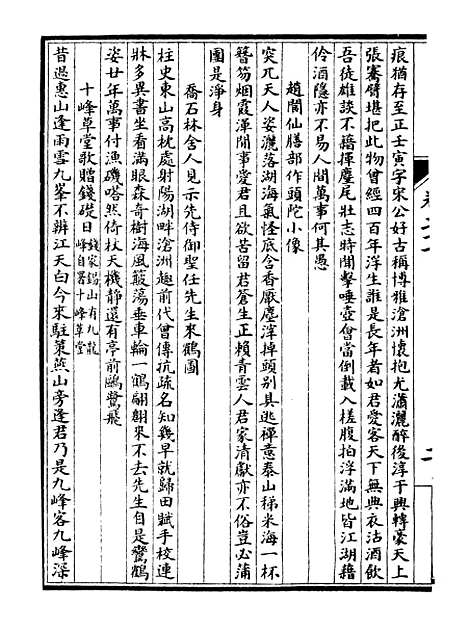 痕猶存至正壬寅字宋公好古稱博雅滄洲懷抱尤瀟灑醉後淳于興轉豪天上
張騫臂堪把此物曾經四百年浮生誰是長年者如君愛客天下無典衣沽酒飲
吾徒雄談不藉揮麈尾壯志時聞擊唾壺會當倒載入槎腹拍浮滿地皆江湖藉
伶酒隱亦不易人間萬事何其愚
趙閬仙膳部作頭陀小像
突兀天人姿灑落湖海氣怪底含香厭塵滓掉頭別具逃禪意泰山稊米海一杯
簪笏烟霞渾閒事愛君且欲苦留君蒼生正賴青雲人君家清獻亦不俗豈必蒲
團是淨身
喬石林舍人見示先侍御聖任先生來鶴圖
柱史東山高枕處射陽湖畔滄洲趣前代曾傳抗疏名知幾早就歸田賦手校連
牀多異書坐看滿眼森奇樹海風簸蕩垂車輪一鶴翩翩來不去先生自是鸞鶴
姿廿年萬事付漁磯嗒然倚杖天機靜還有亭前鷗鷺飛
十峰草堂歌贈錢礎日錢家錫山有九龍峰自署十峰草堂
昔過惠山逢雨雪九峯不辨江天白今來駐策燕山旁逢君乃是九峰客九峰深